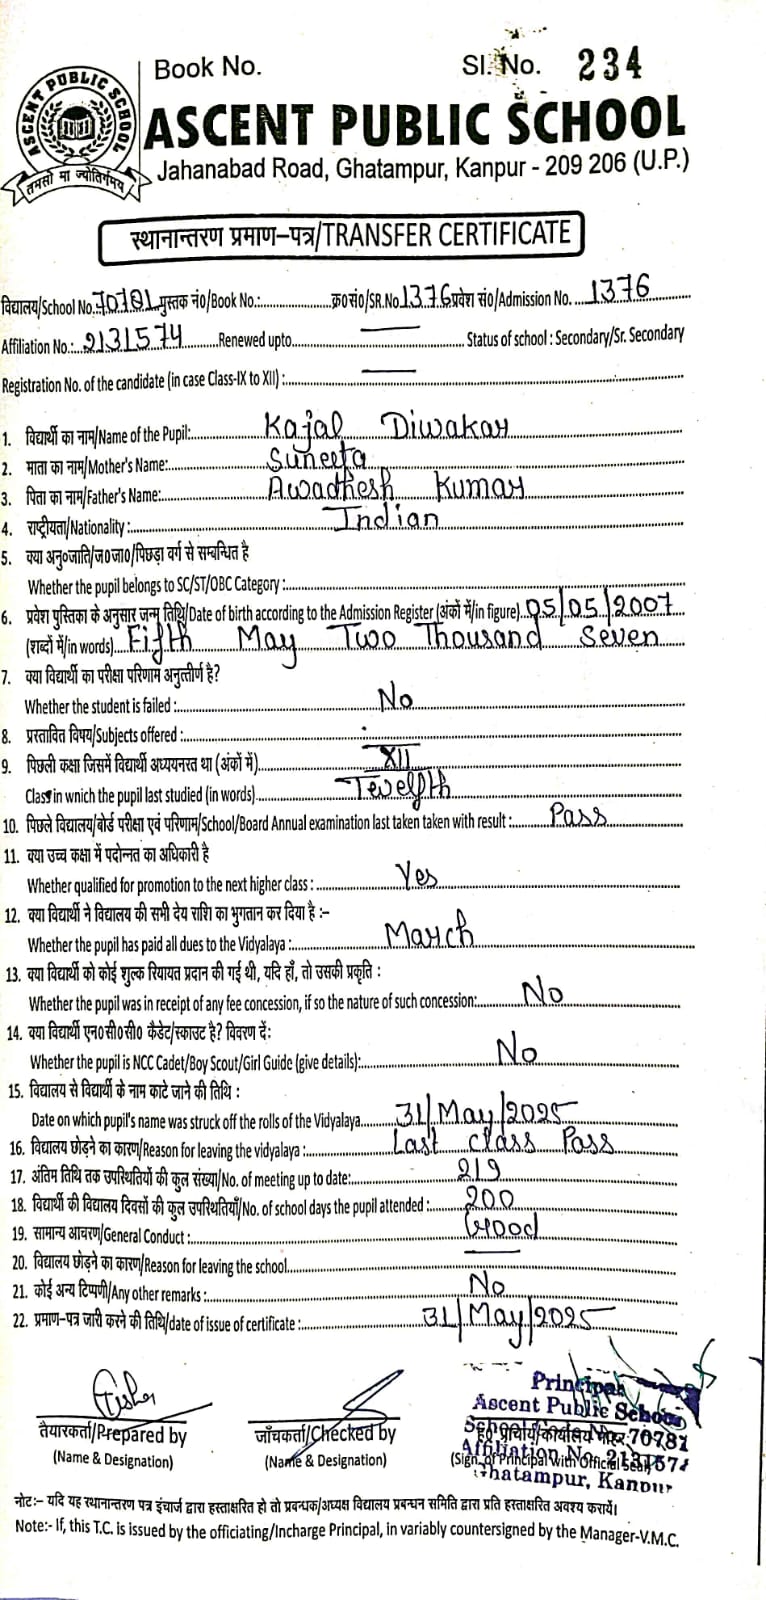 Book No. Sl. No. 234
ASCENT PUBLIC SCHOOL
तमसो मा ज्योतिर्गमय
ASCENT PUBLIC SCHOOL
Jahanabad Road, Ghatampur, Kanpur - 209 206 (U.P.)
स्थानान्तरण प्रमाण-पत्र/TRANSFER CERTIFICATE
विद्यालय/School No. 70781 पुस्तक नं०/Book No.:........ क्र०सं०/SR.No. 1376 प्रवेश सं०/Admission No. 1376
Affiliation No.: 2131574 Renewed upto........ Status of school : Secondary/Sr. Secondary
Registration No. of the candidate (in case Class-IX to XII) :........
1. विद्यार्थी का नाम/Name of the Pupil: Kajal Diwakar
2. माता का नाम/Mother's Name: Suneeta
3. पिता का नाम/Father's Name: Awadhesh Kumar
4. राष्ट्रीयता/Nationality : Indian
5. क्या अनु०जाति/ज०जा०/पिछड़ा वर्ग से सम्बन्धित है
Whether the pupil belongs to SC/ST/OBC Category :........
6. प्रवेश पुस्तिका के अनुसार जन्म तिथि/Date of birth according to the Admission Register (अंकों में/in figure) 05/05/2007
(शब्दों में/in words) Fifth May Two Thousand Seven
7. क्या विद्यार्थी का परीक्षा परिणाम अनुत्तीर्ण है?
Whether the student is failed : No
8. प्रस्तावित विषय/Subjects offered :........
9. पिछली कक्षा जिसमें विद्यार्थी अध्ययनरत था (अंकों में) XII
Class in wnich the pupil last studied (in words) Twelfth
10. पिछले विद्यालय/बोर्ड परीक्षा एवं परिणाम/School/Board Annual examination last taken taken with result : Pass
11. क्या उच्च कक्षा में पदोन्नत का अधिकारी है
Whether qualified for promotion to the next higher class : Yes
12. क्या विद्यार्थी ने विद्यालय की सभी देय राशि का भुगतान कर दिया है :-
Whether the pupil has paid all dues to the Vidyalaya : March
13. क्या विद्यार्थी को कोई शुल्क रियायत प्रदान की गई थी, यदि हाँ, तो उसकी प्रकृति :
Whether the pupil was in receipt of any fee concession, if so the nature of such concession: No
14. क्या विद्यार्थी एन०सी०सी० कैडेट/स्काउट है? विवरण दें:
Whether the pupil is NCC Cadet/Boy Scout/Girl Guide (give details): No
15. विद्यालय से विद्यार्थी के नाम काटे जाने की तिथि :
Date on which pupil's name was struck off the rolls of the Vidyalaya 31/May/2025
16. विद्यालय छोड़ने का कारण/Reason for leaving the vidyalaya : Last class Pass
17. अंतिम तिथि तक उपस्थितियों की कुल संख्या/No. of meeting up to date: 219
18. विद्यार्थी की विद्यालय दिवसों की कुल उपस्थितियाँ/No. of school days the pupil attended : 200
19. सामान्य आचरण/General Conduct : Good
20. विद्यालय छोड़ने का कारण/Reason for leaving the school........
21. कोई अन्य टिप्पणी/Any other remarks : No
22. प्रमाण-पत्र जारी करने की तिथि/date of issue of certificate : 31/May/2025
तैयारकर्ता/Prepared by
(Name & Designation)
जाँचकर्ता/Checked by
(Name & Designation)
Principal
Ascent Public School
School Code No. 70781
ह० प्राचार्य/कार्यालय मोहर
Affiliation No. 2131574
(Sign. of Principal with Official Seal)
Ghatampur, Kanpur
नोट:- यदि यह स्थानान्तरण पत्र इंचार्ज द्वारा हस्ताक्षरित हो तो प्रबन्धक/अध्यक्ष विद्यालय प्रबन्धन समिति द्वारा प्रति हस्ताक्षरित अवश्य करायें।
Note:- If, this T.C. is issued by the officiating/Incharge Principal, in variably countersigned by the Manager-V.M.C.